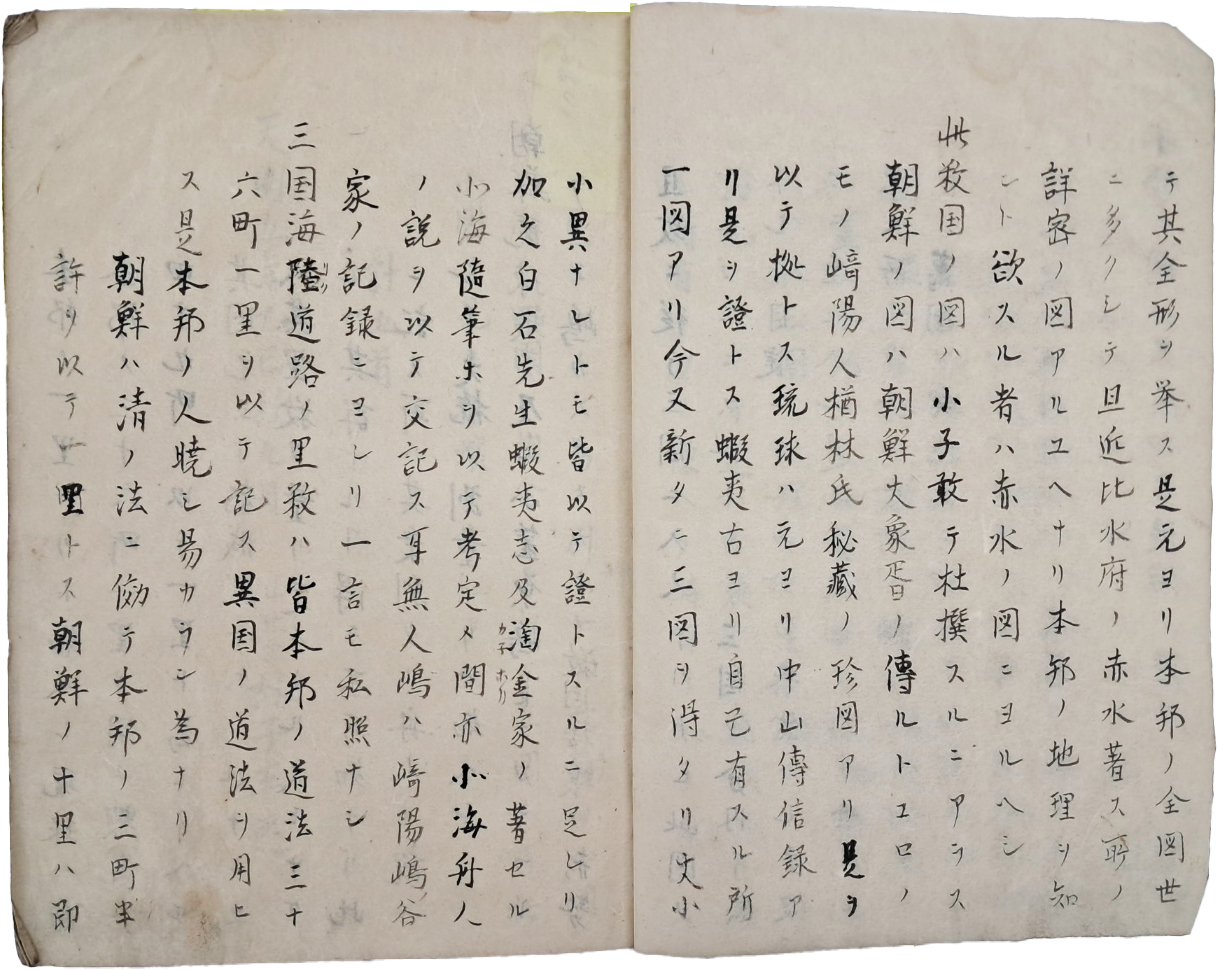 テ其全形ヲ挙ス是元ヨリ本邦ノ全図世
ニ多クシテ且近比水府ノ赤水著ス所ノ
詳密ノ図アルユヘナリ本邦ノ地理ヲ知
ント欲スル者ハ赤水ノ図ニヨルヘシ
此数国ノ図ハ小子敢テ杜撰スルニアラス
朝鮮ノ図ハ朝鮮大象胥ノ傳ルトコロノ
モノ﨑陽人楢林氏秘藏ノ珍図アリ是ヲ
以テ拠トス琉球ハ元ヨリ中山傳信録ア
リ是ヲ證トス蝦夷古ヨリ自己有スル所
一図アリ今又新タニ三図ヲ得タリ大小
小異ナレトモ皆以テ證トスルニ足レリ
加之白石先生蝦夷志及淘金家ノ著セル
カネホリ
小海隨筆ホヲ以テ考定メ間亦小海舟人
ノ説ヲ以テ交記ス耳無人嶋ハ﨑陽嶋谷
家ノ記録ニヨレリ一言モ私照ナシ
三国海陸道路ノ里数ハ皆本邦ノ道法三十
六町一里ヲ以テ記ス異国ノ道法ヲ用ヒ
ス是本邦ノ人暁シ易カラン為ナリ
朝鮮ハ清ノ法ニ倣テ本邦ノ三町半
許ヲ以テ一里トス朝鮮ノ十里ハ即